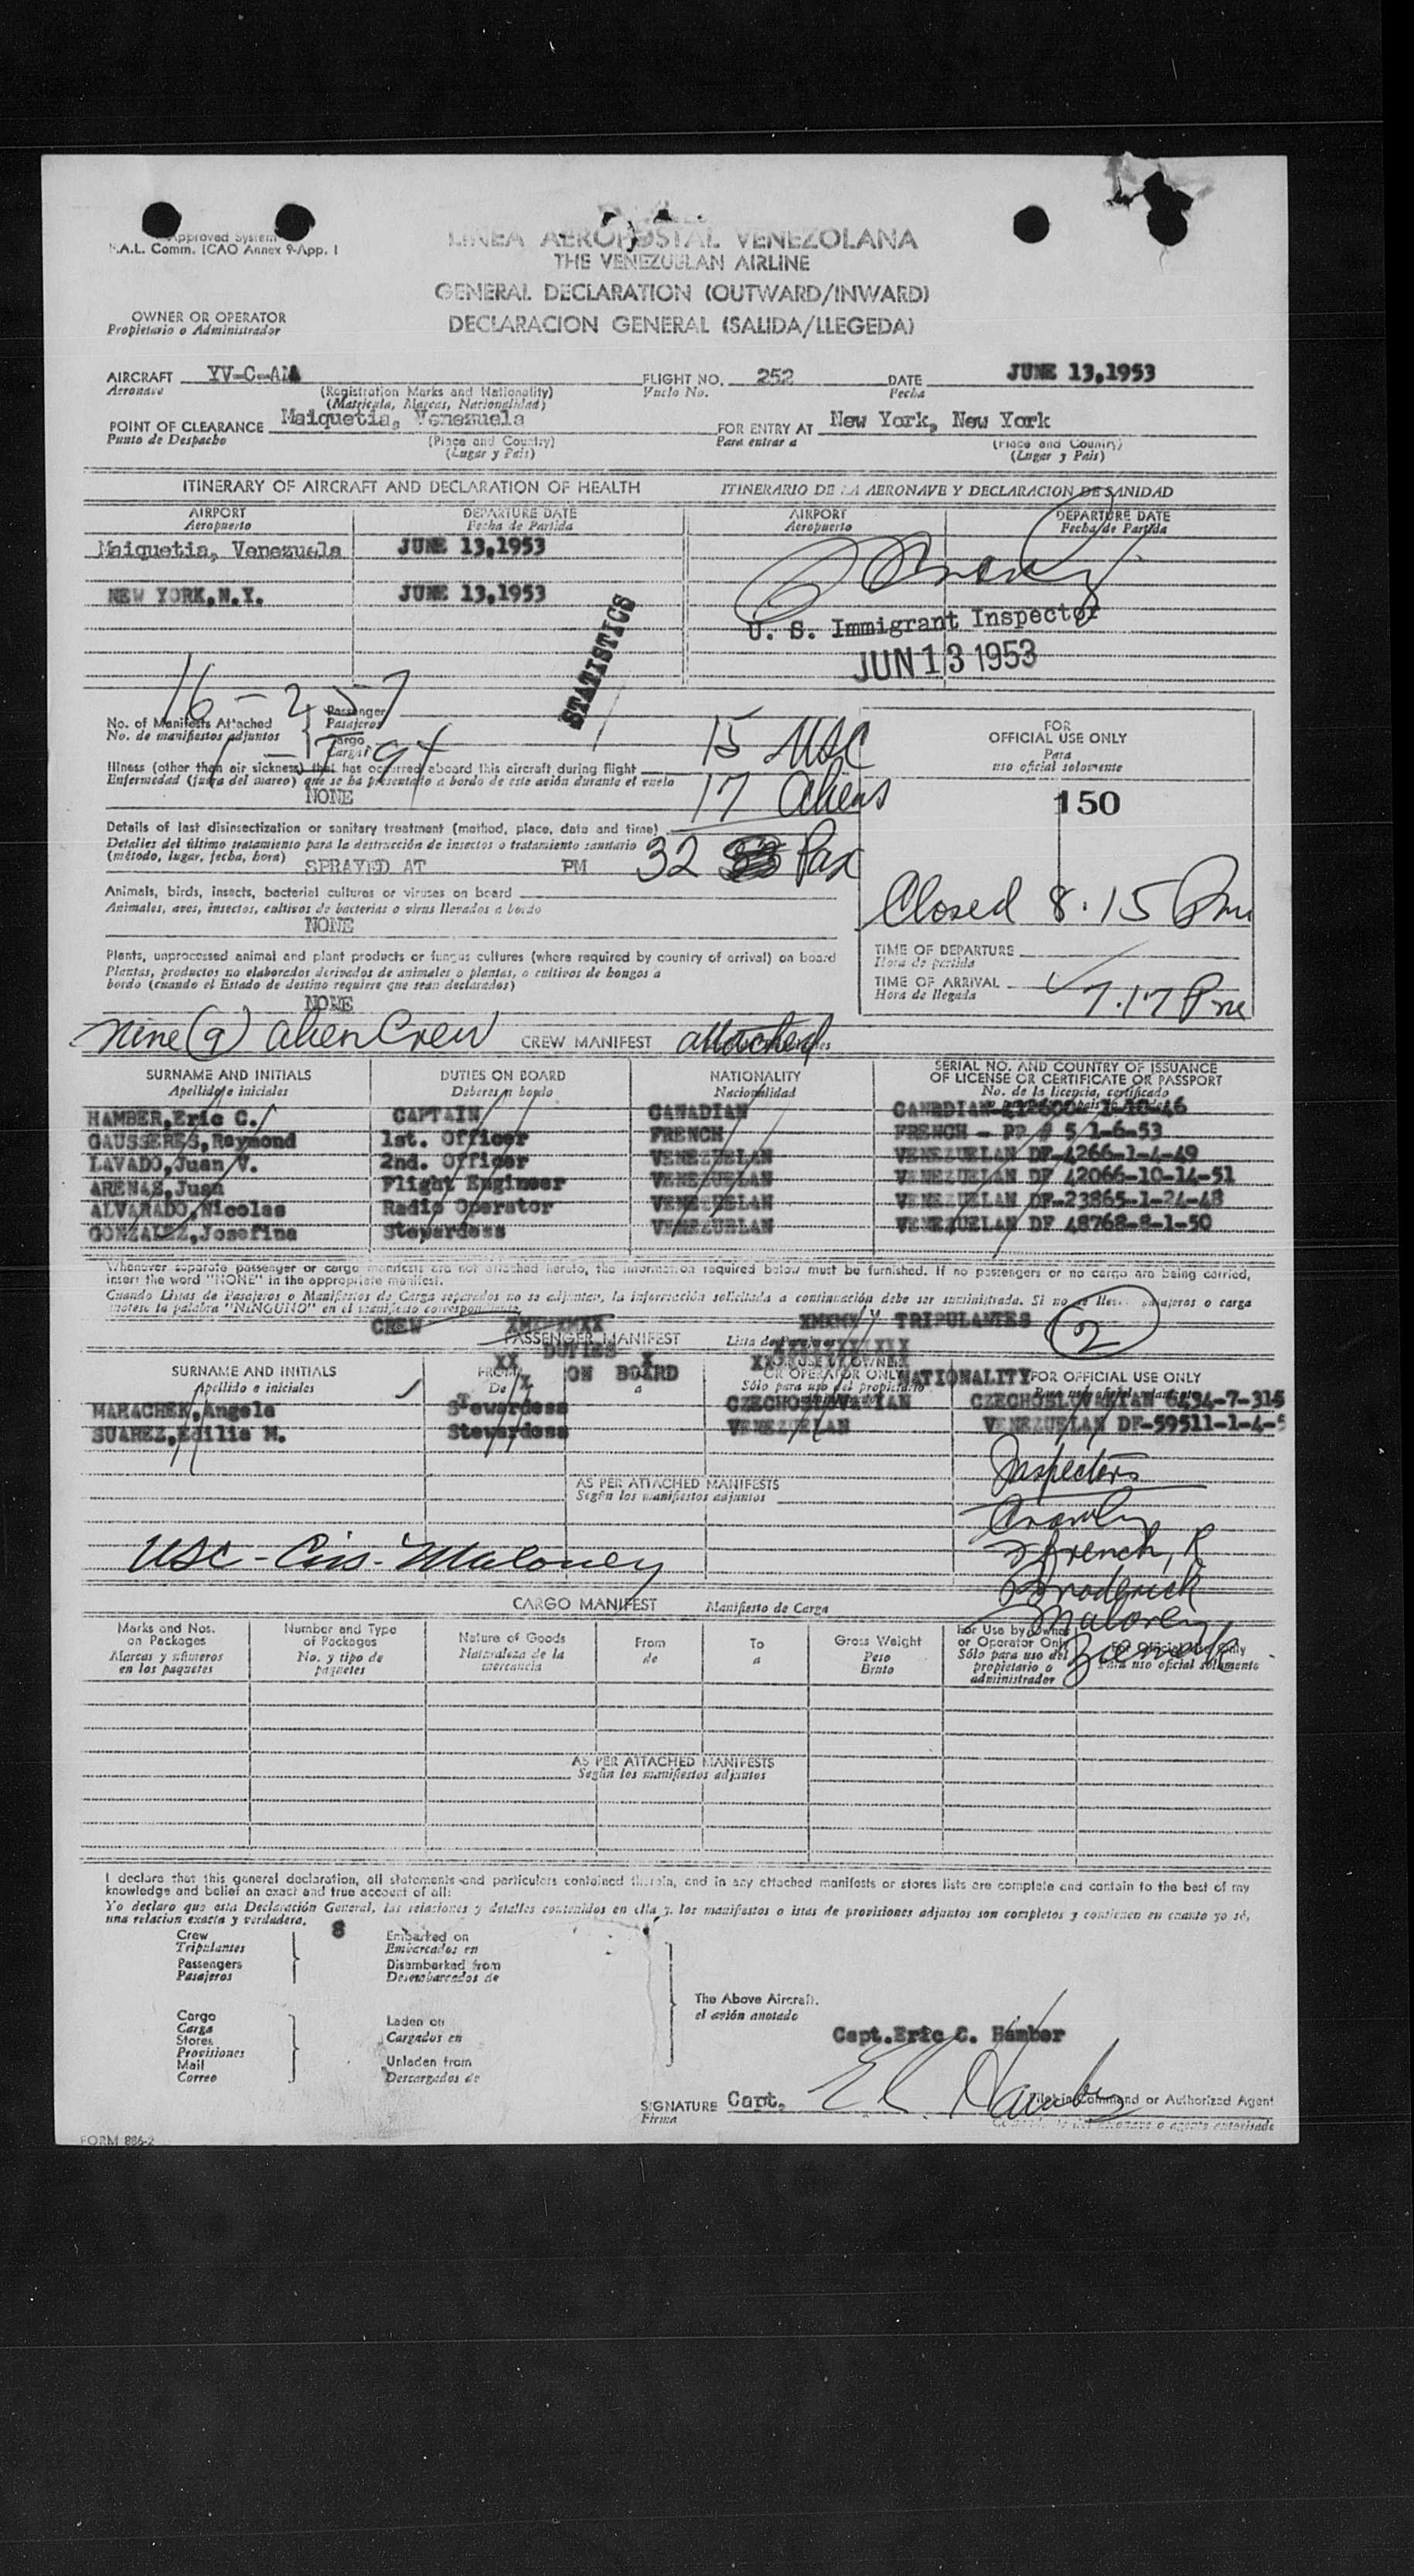 Approved System
F.A.L. Comm. ICAO Annex 9-App. 1
LINEA AEROPOSTAL VENEZOLANA
THE VENEZUELAN AIRLINE
GENERAL DECLARATION (OUTWARD/INWARD)
DECLARACION GENERAL (SALIDA/LLEGEDA)
OWNER OR OPERATOR
Propietario o Administrador
AIRCRAFT YV-C-AMA FLIGHT NO. 252 DATE JUNE 13,1953
Aeronave (Registration Marks and Nationality) Vuelo No. Fecha
(Matricula, Marcas, Nacionalidad)
POINT OF CLEARANCE Maiquetia, Venezuela FOR ENTRY AT New York, New York
Punto de Despacho (Place and Country) Para entrar a (Place and Country)
(Lugar y Pais) (Lugar y Pais)
ITINERARY OF AIRCRAFT AND DECLARATION OF HEALTH ITINERARIO DE LA AERONAVE Y DECLARACION DE SANIDAD
AIRPORT DEPARTURE DATE AIRPORT DEPARTURE DATE
Aeropuerto Fecha de Partida Aeropuerto Fecha de Partida
Maiquetia, Venezuela JUNE 13,1953
NEW YORK,N.Y. JUNE 13,1953
U. S. Immigrant Inspector
JUN 13 1953
STATISTICS
16-257
No. of Manifests Attached Passenger
No. de manifiestos adjuntos Pasajeros
Cargo
Carga
15 USC
17 Aliens
32 Pax
Illness (other than air sickness) that has occurred aboard this aircraft during flight
Enfermedad (fuera del mareo) que se ha presentado a bordo de este avión durante el vuelo
NONE
Details of last disinsectization or sanitary treatment (method, place, date and time)
Detalles del último tratamiento para la destrucción de insectos o tratamiento sanitario
(método, lugar, fecha, hora)
SPRAYED AT PM
Animals, birds, insects, bacterial cultures or viruses on board
Animales, aves, insectos, cultivos de bacterias o virus llevados a bordo
NONE
Plants, unprocessed animal and plant products or fungus cultures (where required by country of arrival) on board
Plantas, productos no elaborados derivados de animales o plantas, o cultivos de hongos a
bordo (cuando el Estado de destino requiere que sean declarados)
NONE
FOR
OFFICIAL USE ONLY
Para
uso oficial solomente
150
Closed 8.15 Pm
TIME OF DEPARTURE
Hora de partida
TIME OF ARRIVAL 7.17 Pm
Hora de llegada
Nine (9) alien Crew CREW MANIFEST attached
SURNAME AND INITIALS DUTIES ON BOARD NATIONALITY SERIAL NO. AND COUNTRY OF ISSUANCE
OF LICENSE OR CERTIFICATE OR PASSPORT
Apellido e iniciales Deberes a bordo Nacionalidad No. de la licencia, certificado
HAMBER,Eric C. CAPTAIN CANADIAN CANADIAN
GAUSSERES,Raymond 1st. Officer FRENCH FRENCH - PP # 5 1-6-53
LAVADO,Juan V. 2nd. Officer VENEZUELAN VENEZUELAN DF-4266-1-4-49
ARENAS,Juan Flight Engineer VENEZUELAN VENEZUELAN DF 42066-10-14-51
ALVARADO,Nicolas Radio Operator VENEZUELAN VENEZUELAN DF-23865-1-24-48
GONZALEZ,Josefina Stewardess VENEZUELAN VENEZUELAN DF 48768-8-1-50
Whenever separate passenger or cargo manifests are not attached hereto, the information required below must be furnished. If no passengers or no cargo are being carried,
insert the word "NONE" in the appropriate manifest.
Cuando Listas de Pasajeros o Manifiestos de Carga separados no se adjuntan, la información solicitada a continuación debe ser suministrada. Si no se llevan pasajeros o carga
anotese la palabra "NINGUNO" en el manifiesto correspondiente.
CREW TRIPULANTES 2
PASSENGER MANIFEST
DUTIES
ON BOARD
SURNAME AND INITIALS FROM OR OPERATOR ONLY NATIONALITY FOR OFFICIAL USE ONLY
Apellido e iniciales De a Sólo para uso del propietario
MARACHEK,Angela Stewardess CZECHOSLOVAKIAN CZECHOSLOVAKIAN 6434-7-315
SUAREZ,Edilia M. Stewardess VENEZUELAN VENEZUELAN DF-59511-1-4-5
Inspectors
AS PER ATTACHED MANIFESTS
Según los manifiestos adjuntos
French, R
Broderick
Maloney
USC - Cus - Maloney
CARGO MANIFEST Manifiesto de Carga
Marks and Nos. Number and Type Nature of Goods From To Gross Weight For Use by Owner For Official Use Only
on Packages of Packages Naturaleza de la de a Peso or Operator Only Para uso oficial solamente
Marcas y números No. y tipo de mercancia Bruto Sólo para uso del
en los paquetes paquetes propietario o
administrador
AS PER ATTACHED MANIFESTS
Según los manifiestos adjuntos
I declare that this general declaration, all statements and particulars contained therein, and in any attached manifests or stores lists are complete and contain to the best of my
knowledge and belief an exact and true account of all:
Yo declaro que esta Declaración General, las relaciones y detalles contenidos en ella y los manifiestos o istas de provisiones adjuntos son completos y contienen en cuanto yo sé,
una relacion exacta y verdadera.
Crew 8 Embarked on
Tripulantes Embarcados en
Passengers Disembarked from
Pasajeros Desembarcados de
The Above Aircraft.
el avión anotado
Cargo Laden on
Carga Cargados en
Stores
Provisiones
Mail Unladen from
Correo Descargados de
Capt.Eric C. Hamber
SIGNATURE Capt. E C. Hamber Pilot in Command or Authorized Agent
Firma
FORM 886-2